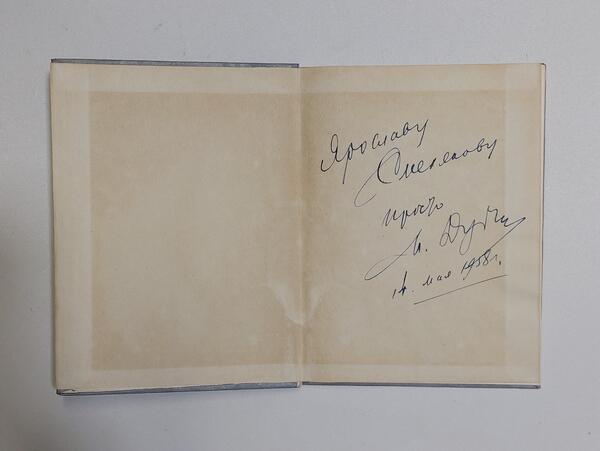 Ярославу
Смелякову
просто
М. Дудин
14. мая 1958 г.